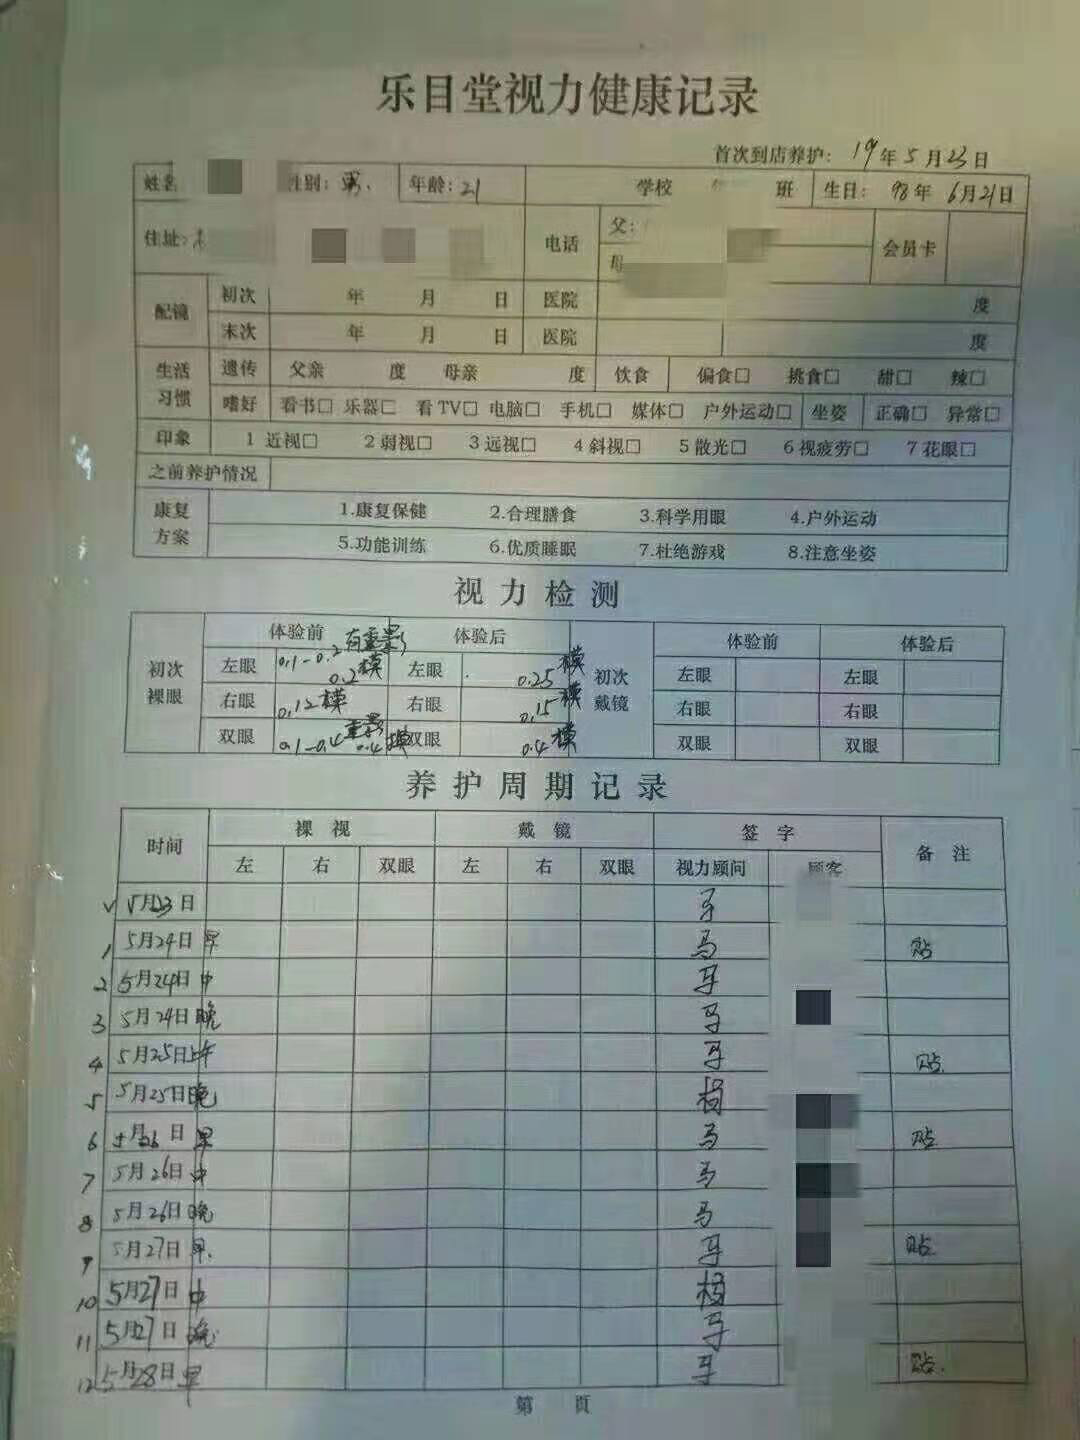 乐目堂视力健康记录
首次到店养护: 19年5月23日
姓名 性别: 男 年龄: 21 学校 班 生日: 98年6月21日
住址: 电话 父: 会员卡
母
配镜 初次 年 月 日 医院 度
末次 年 月 日 医院 度
生活习惯 遗传 父亲 度 母亲 度 饮食 偏食□ 挑食□ 甜□ 辣□
嗜好 看书□ 乐器□ 看TV□ 电脑□ 手机□ 媒体□ 户外运动□ 坐姿 正确□ 异常□
印象 1 近视□ 2弱视□ 3远视□ 4斜视□ 5散光□ 6视疲劳□ 7花眼□
之前养护情况
康复方案 1.康复保健 2.合理膳食 3.科学用眼 4.户外运动
5.功能训练 6.优质睡眠 7.杜绝游戏 8.注意坐姿
视力检测
初次裸眼 体验前 体验后 初次戴镜 体验前 体验后
左眼 0.1-0.2有重影 0.2模 左眼 0.25模 左眼 左眼
右眼 0.12模 右眼 0.15模 右眼 右眼
双眼 0.1-0.4重影 0.4模 双眼 0.4模 双眼 双眼
养护周期记录
时间 裸视 戴镜 签字 备注
左 右 双眼 左 右 双眼 视力顾问 顾客
√ 5月23日 马
1 5月24日 早 马 贴
2 5月24日 中 马
3 5月24日 晚 马
4 5月25日上午 马 贴
5 5月25日晚 杨
6 5月26日 早 马 贴
7 5月26日 中 马
8 5月26日 晚 马
9 5月27日 早 马 贴
10 5月27日 中 杨
11 5月27日 晚 马
12 5月28日 早 马 贴
第 页